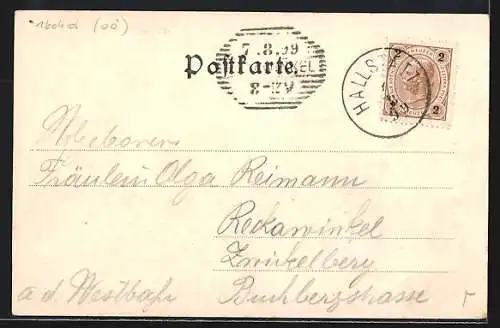 1604d (OÖ)
7.8.99
Postkarte.
8-
HALLST
2 2
2 2
Wolgeboren
Fräulein Olga Reimann
Reckawinkel
Zwickelberg
a. d. Westbahn Buchbergstrasse